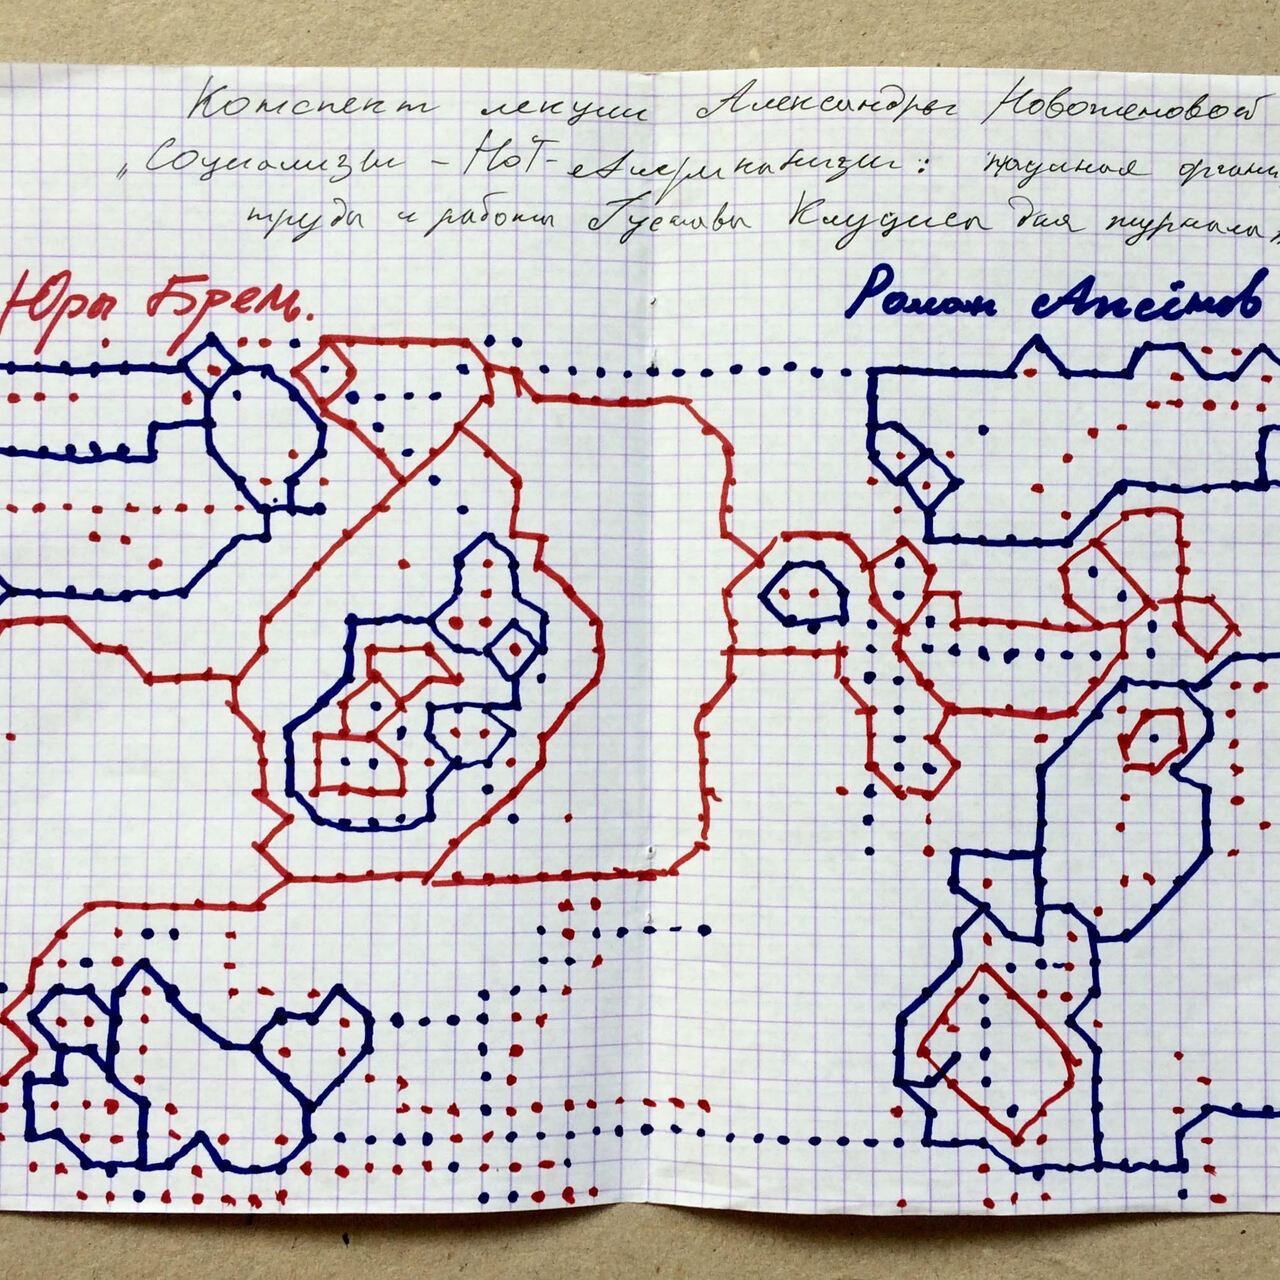 Конспект лекции Александры Новоженовой
„Социализм – НОТ –             : научная органи
труда и работы Густава Клуциса для журнала
Юры Брель.
Роман Аксёнов